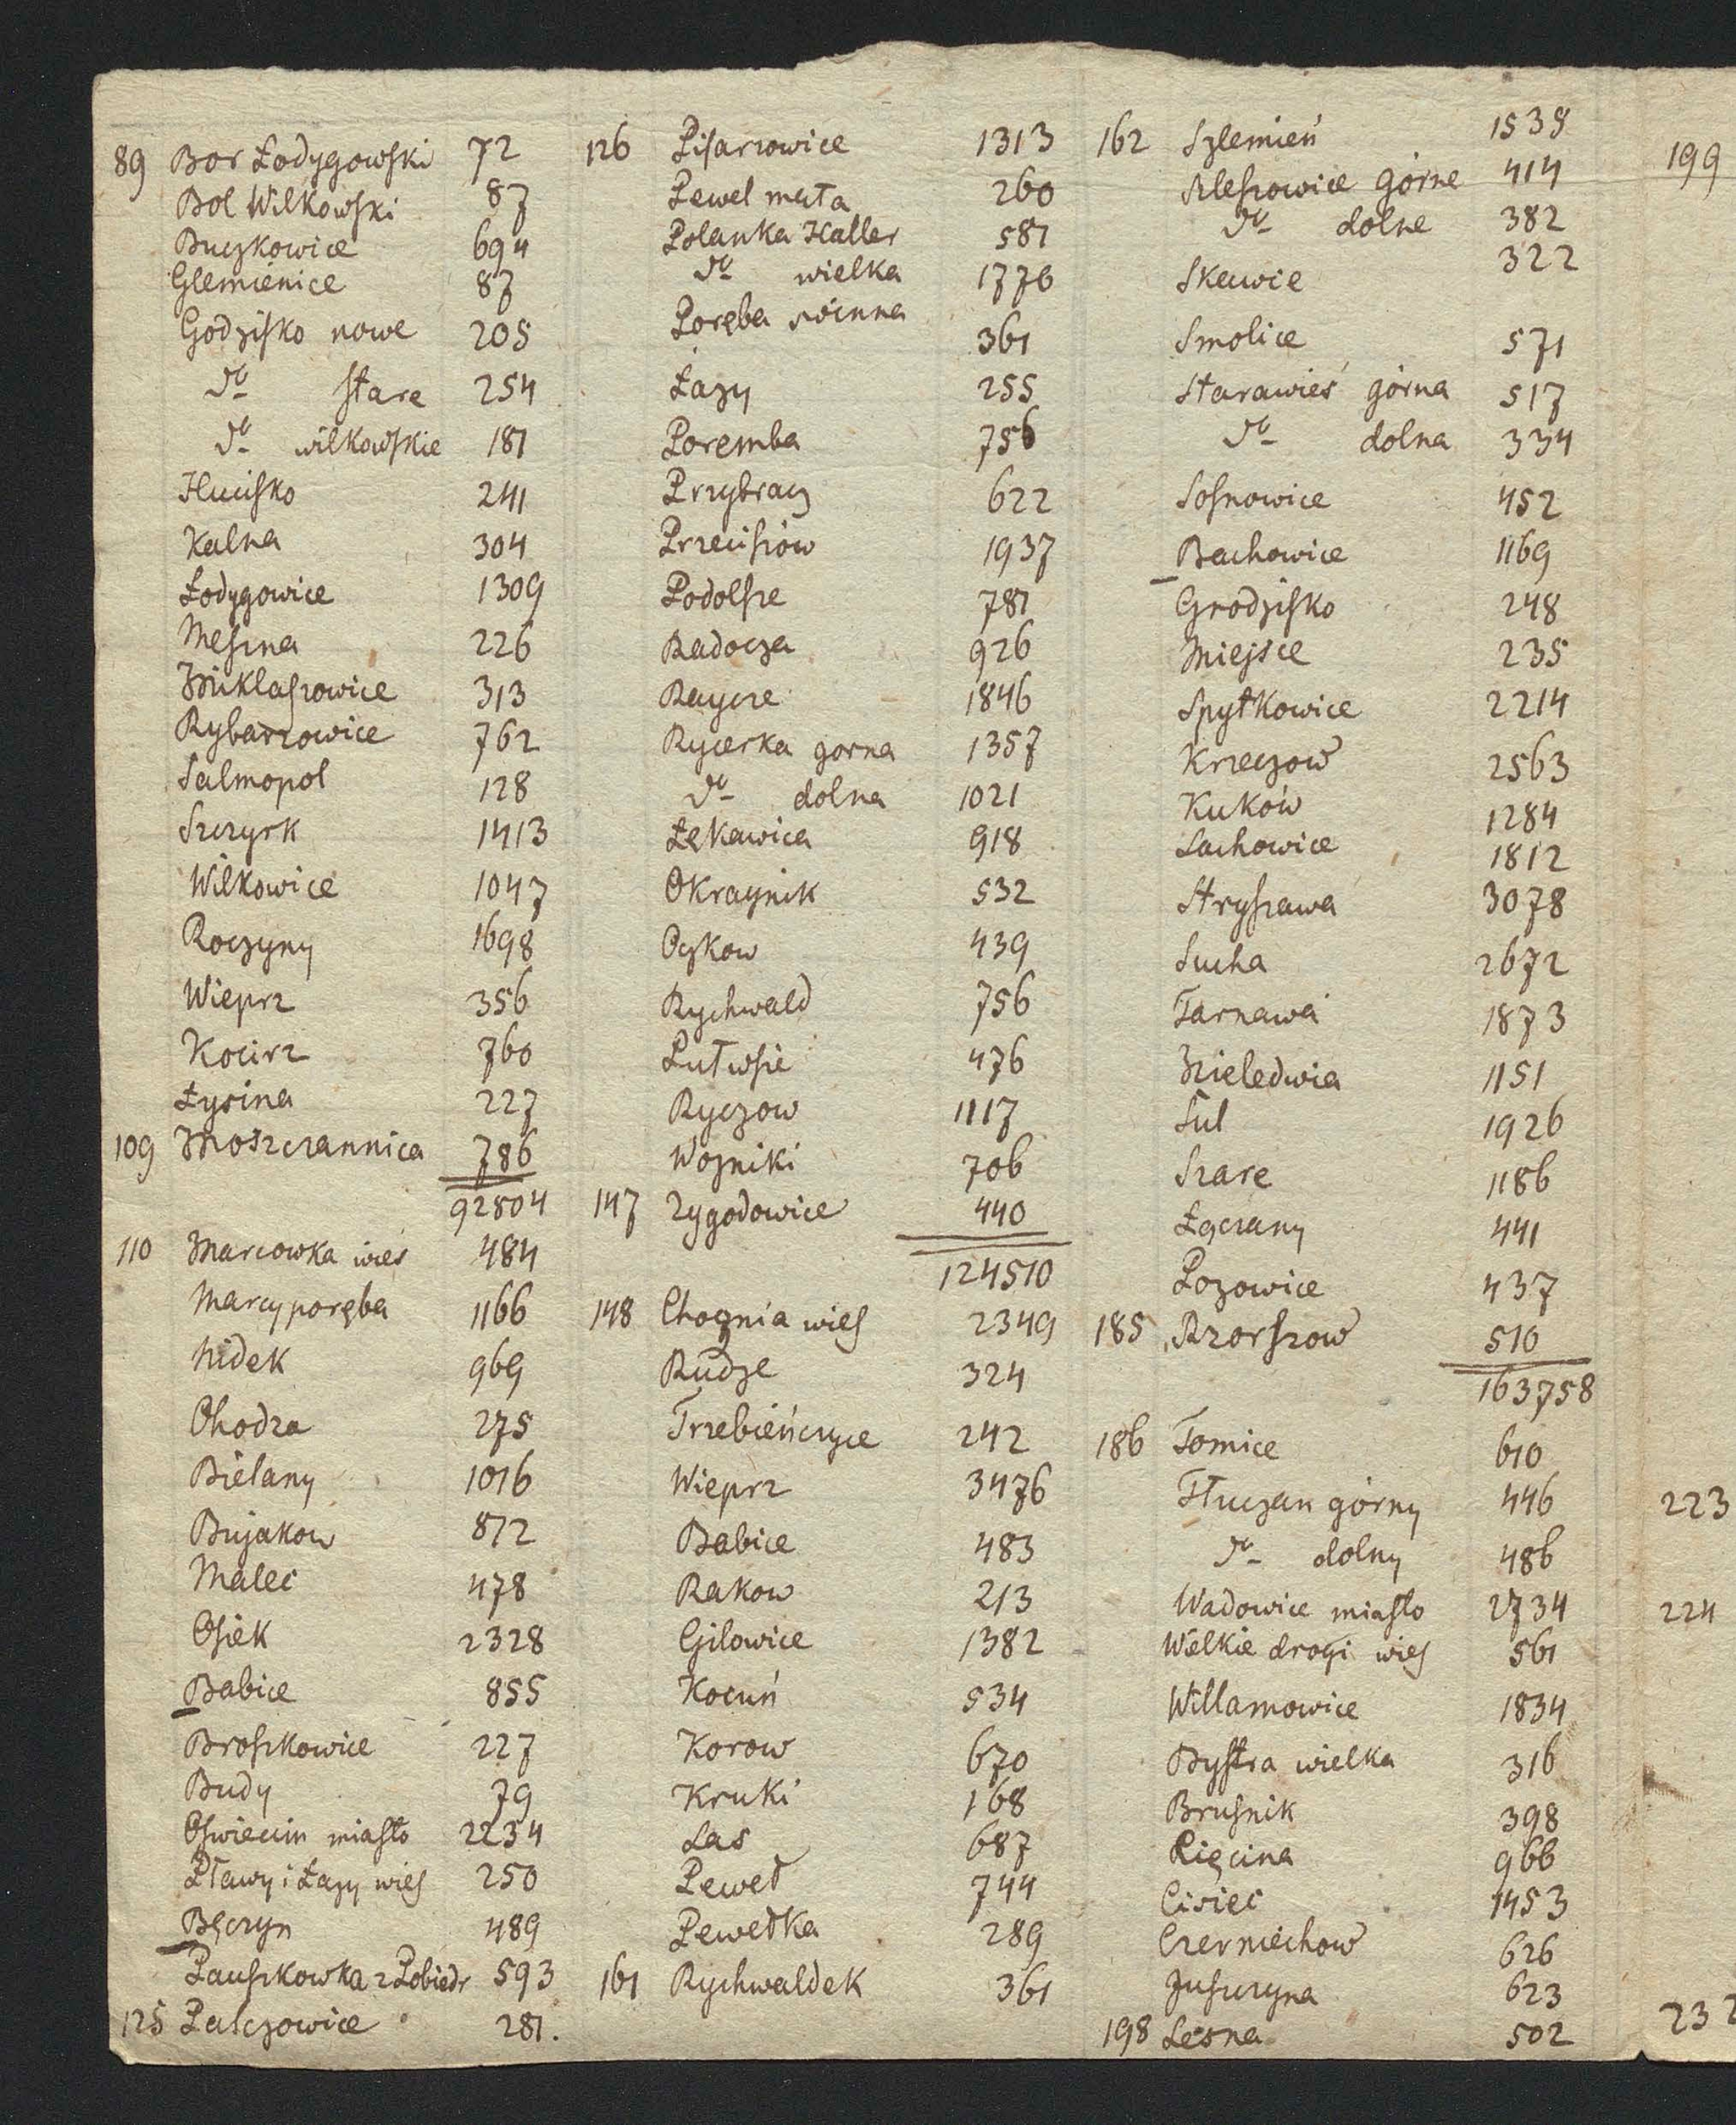 89 Bor Łodygowski 72
Bol Wilkowski 87
Buczkowice 694
Glemienice 87
Godzisko nowe 205
do stare 254
do wilkowskie 181
Hucisko 241
Kalna 304
Łodygowice 1309
Meszna 226
Miklaszowice 313
Rybarzowice 762
Salmopol 128
Szczyrk 1413
Wilkowice 1047
Roczyny 1698
Wieprz 356
Kocirz 760
Łysina 227
109 Moszczannica 786
92804
110 Marcowka wies 484
Marcyporęba 1166
Nidek 969
Chodza 275
Bielany 1016
Bujakow 872
Malec 478
Osiek 2328
Babice 855
Broszkowice 227
Budy 79
Oswiecim miasto 2234
Pławy i Łazy wies 250
Bęczyn 489
Paszkowka z Pobiedr 593
125 Palczowice 281.
126 Pisarzowice 1313
Pewel mała 260
Polanka Haller 581
do wielka 1776
Poręba 361
Łazy 255
Poremba 756
Przybracz 622
Przeciszów 1937
Podolsze 781
Radocza 926
Raycze 1846
Rycerka gorna 1357
do dolna 1021
Łękawica 918
Okraynik 532
Oczkow 439
Rychwald 756
Lutwsie 476
Ryczow 1117
Wozniki 706
147 Zygodowice 440
124510
148 Choznia wies 2349
Rudze 324
Trzebieńczyce 242
Wieprz 3476
Babice 483
Rakow 213
Gilowice 1382
Kocuń 534
Korow 670
Kruki 168
Las 687
Peweł 744
Pewełka 289
161 Rychwaldek 361
162 Szlemień 1538
Szleszowice górne 414
do dolne 382
Skawce 322
Smolice 571
Starawieś górna 517
do dolna 334
Sosnowice 452
Bachowice 1169
Grodzisko 248
Miejsce 235
Spytkowice 2214
Krzeczow 2563
Kuków 1284
Lachowice 1812
Stryszawa 3078
Sucha 2672
Tarnawa 1873
Nieledwia 1151
Sul 1926
Szare 1186
Łączany 441
Pozowice 437
185 Rzorszow 510
163758
186 Tomice 610
Tłuczan górny 446
do dolny 486
Wadowice miasto 2734
Wielkie drogi wies 561
Willamowice 1834
Bystra wielka 316
Brusnik 398
Pięcina 966
Cisiec 1453
Czerniechow 626
Juszczyna 623
198 Lesna 502
199
223
224